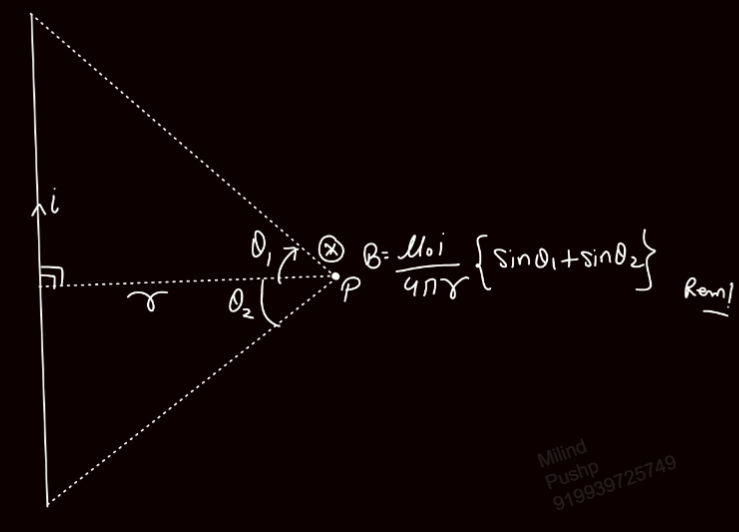 i
θ₁ ⊗ B = μ₀i / 4πr {sinθ₁ + sinθ₂}
r θ₂ P Rem!
Milind
Pushp
919939725749